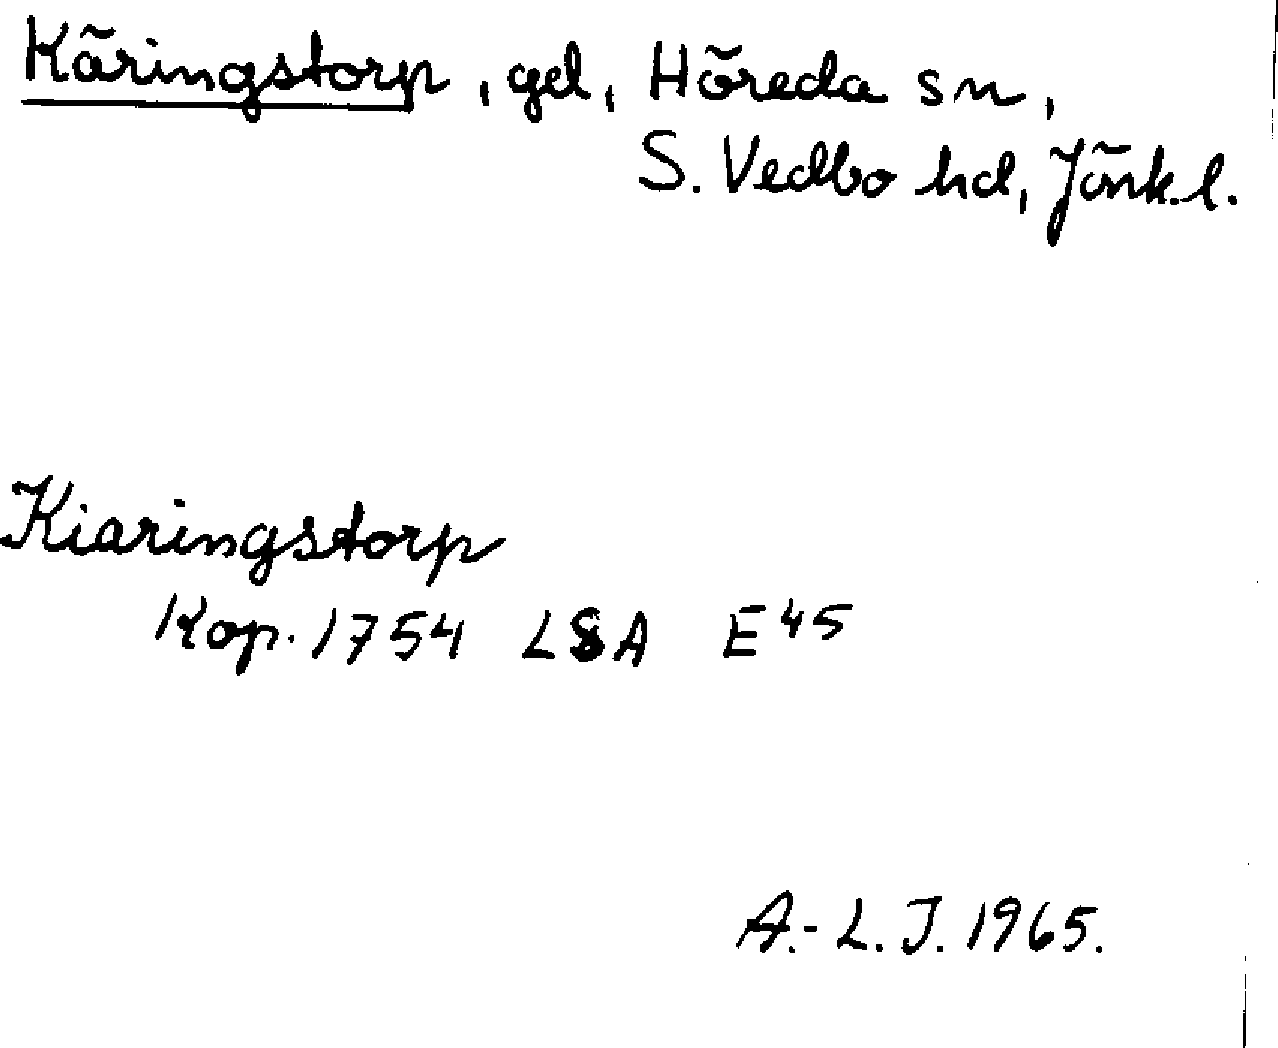 Käringstorp, gd, Höreda sn,
S. Vedbo hd, Jönk. l.
Kiaringstorp
Kop. 1754 LSA E 45
A.-L. J. 1965.